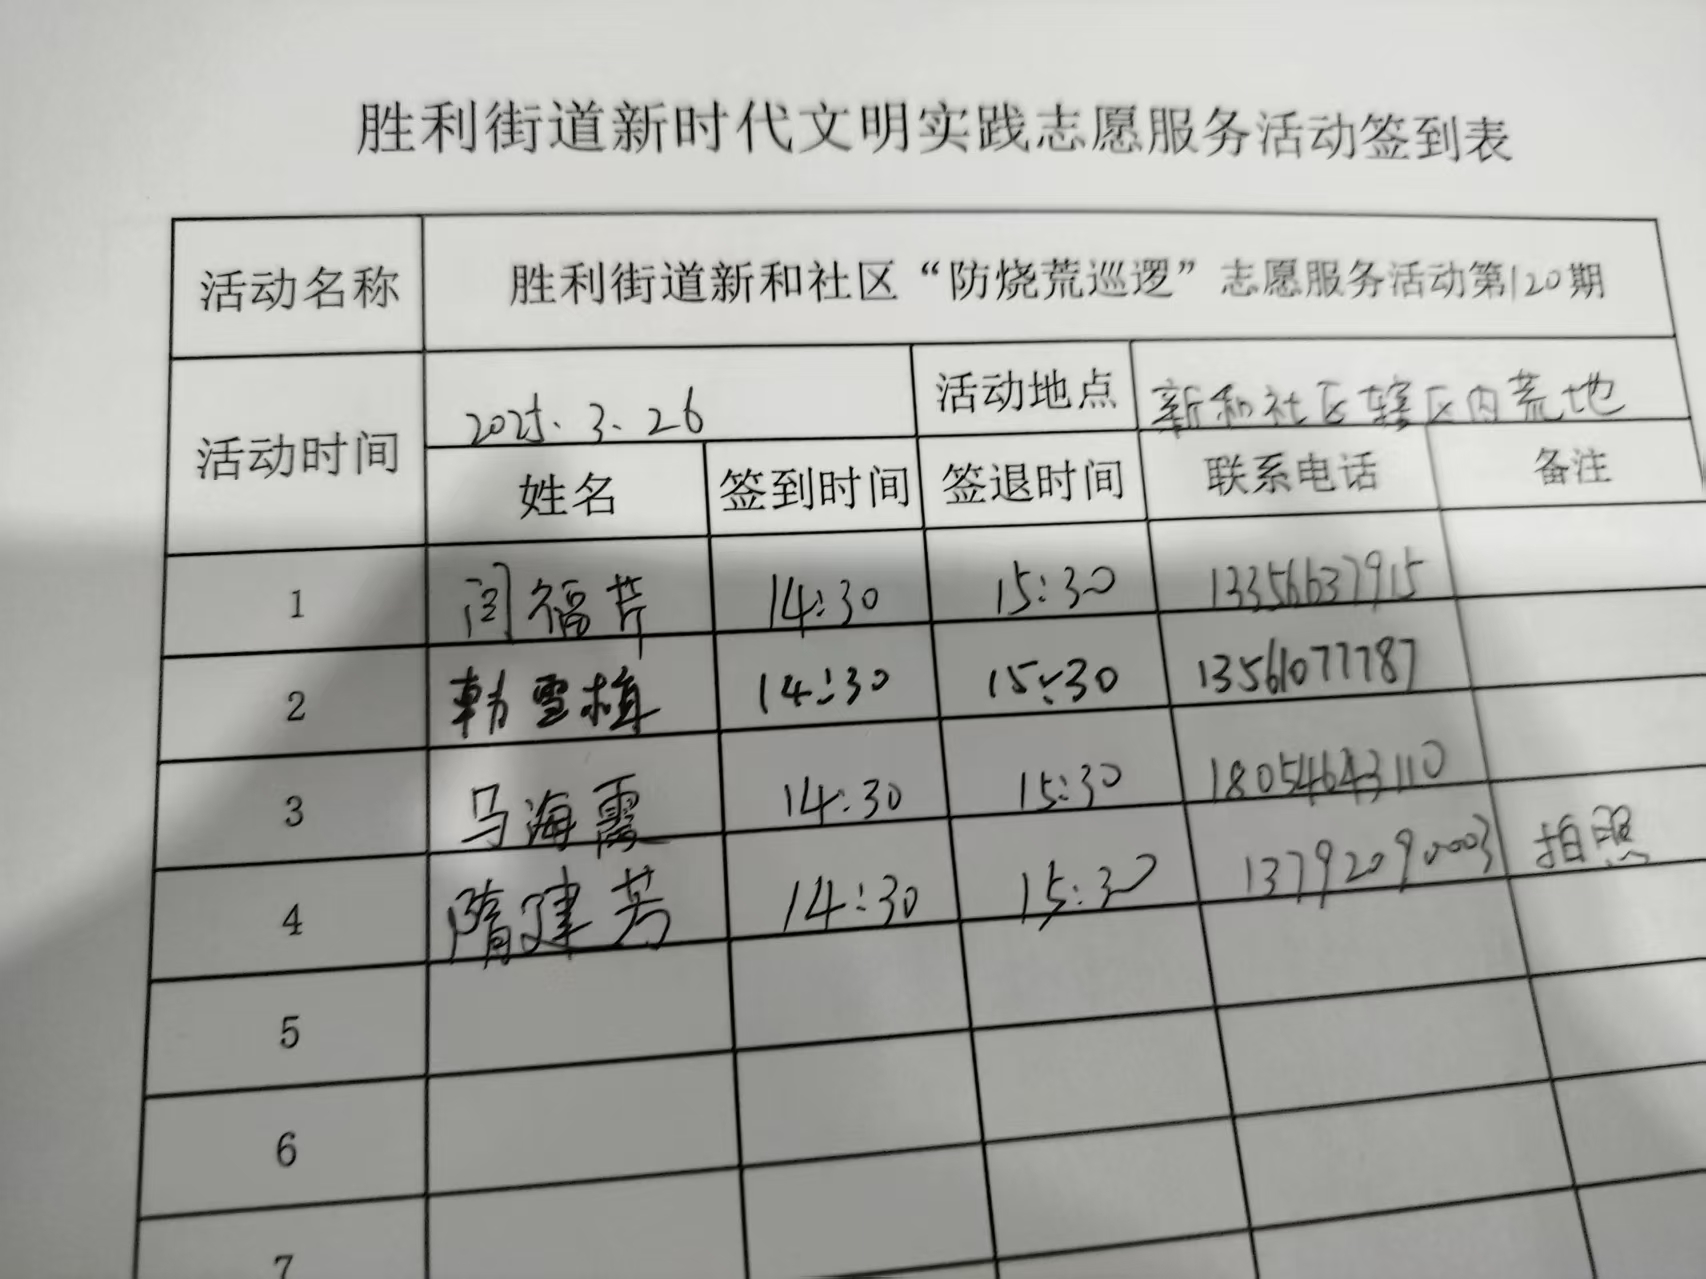 胜利街道新时代文明实践志愿服务活动签到表
活动名称 胜利街道新和社区“防烧荒巡逻”志愿服务活动第120期
活动时间 2025.3.26 活动地点 新和社区辖区内荒地
姓名 签到时间 签退时间 联系电话 备注
1 闫福芹 14:30 15:30 13356637915
2 韩雪梅 14:30 15:30 13561077787
3 马海霞 14:30 15:30 18054643110
4 隋建芳 14:30 15:30 13792090003 拍照
5
6
7